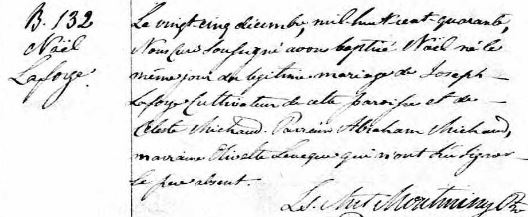 B. 132
Noël
Laforge
Le vingt-cinq décembre, mil huit cent quarante,
Nous Curé soussigné avons baptisé Noël né le
même jour du légitime mariage de Joseph
Laforge Cultivateur de cette paroisse et de
Celeste Michaud. Parrain Abraham Michaud,
marraine Levèque qui n'ont su signer
le père absent.
Ls. Ant Montminy Ptr